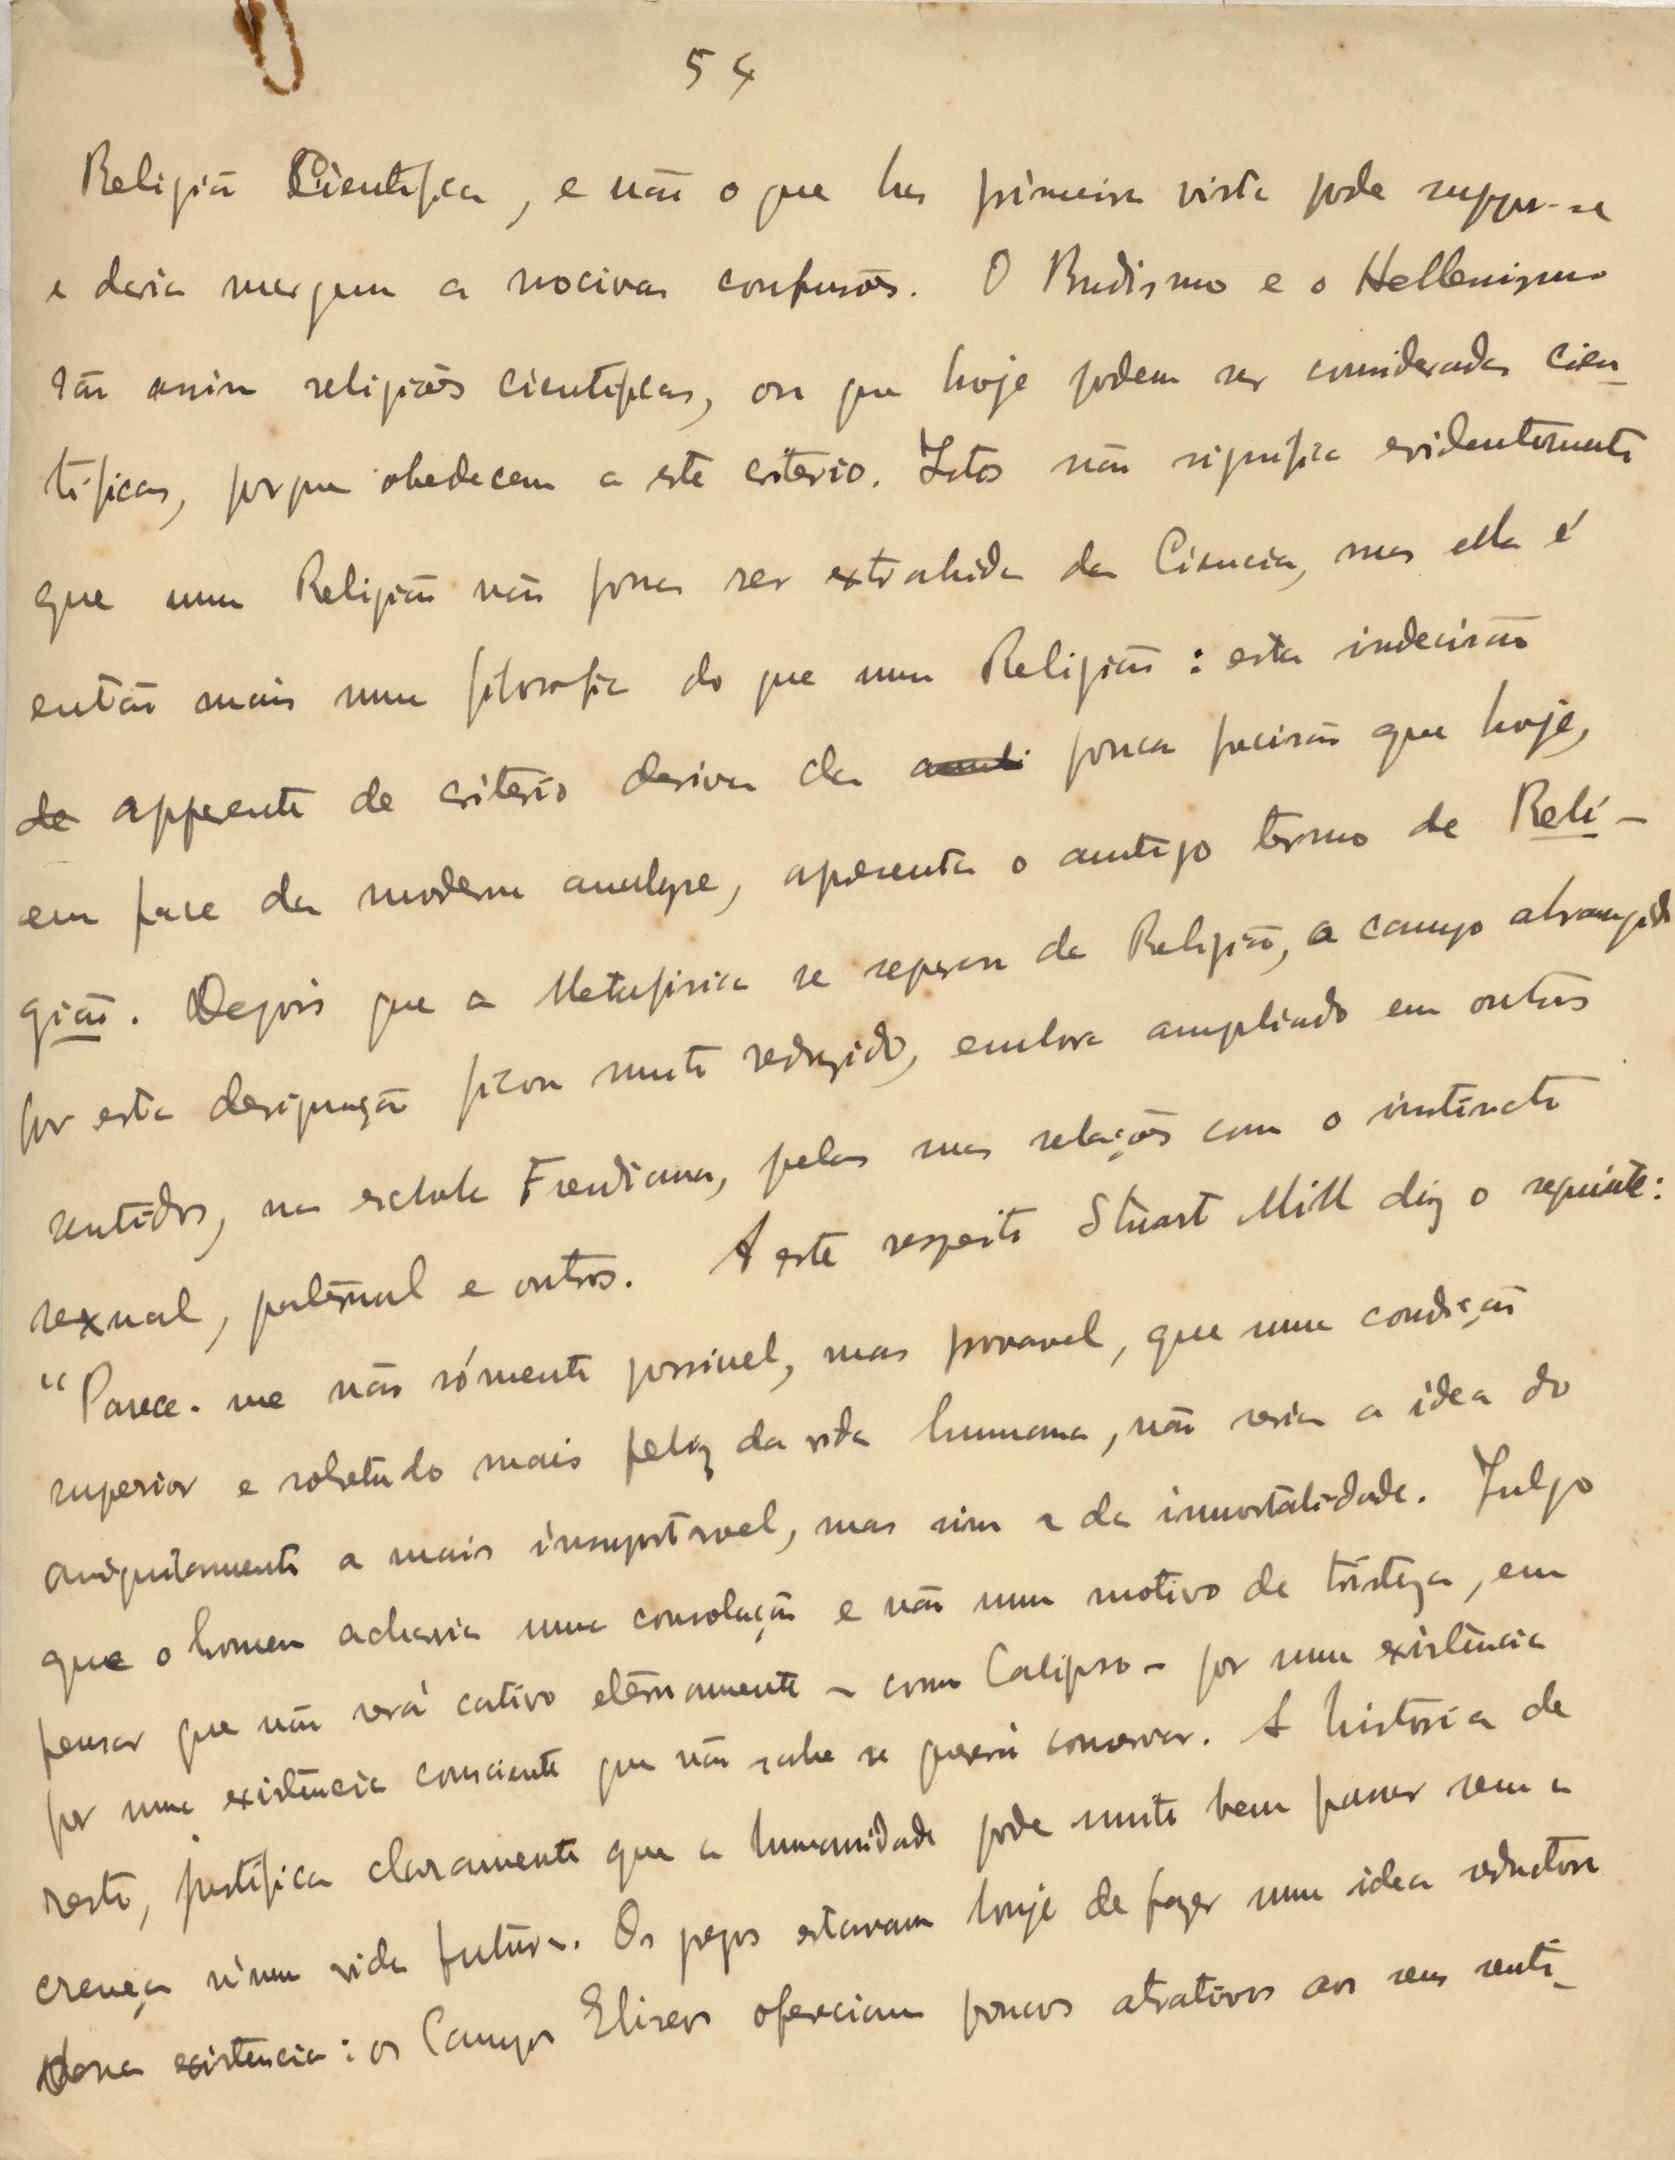 54
Religião Cientifica, e não o que ha primeira vista pode suppor-se
e daria margem a nocivas confusões. O Budismo e o Hellenismo
são assim religiões cientificas, ou que hoje podem ser consideradas cien-
tificas, porque obedecem a este criterio. Isto não significa evidentemente
que uma Religião não possa ser extrahida da Ciencia, mas ella é
então mais uma filosofia do que uma Religião: esta indecisão
de apparente de criterio deriva da pouca precisão que hoje,
em face da moderna analyse, apresenta o antigo termo de Reli-
gião. Depois que a Metafisica se separou da Religião, o campo abrangido
por esta designação ficou muito reduzido, embora ampliado em outros
sentidos, na eschola Freudiana, pelas suas relações com o instincto
sexual, paternal e outros. A este respeito Stuart Mill diz o seguinte:
"Parece-me não sómente possivel, mas provavel, que uma condição
superior e sobretudo mais feliz da vida humana, não seria a idea do
aniquilamento a mais insuportavel, mas sim a da immortalidade. Julgo
que o homem acharia uma consolação e não um motivo de tristeza, em
pensar que não será cativo eternamente - como Calipso - por uma existência
por uma existência consciente que não sabe se quererá conservar. A historia de
resto, justifica claramente que a humanidade pode muito bem passar sem a
crença n'uma vida futura. Os gregos estavam longe de fazer uma idea seductora
dessa existencia: os Campos Eliseos ofereciam poucos atrativos aos seus senti-